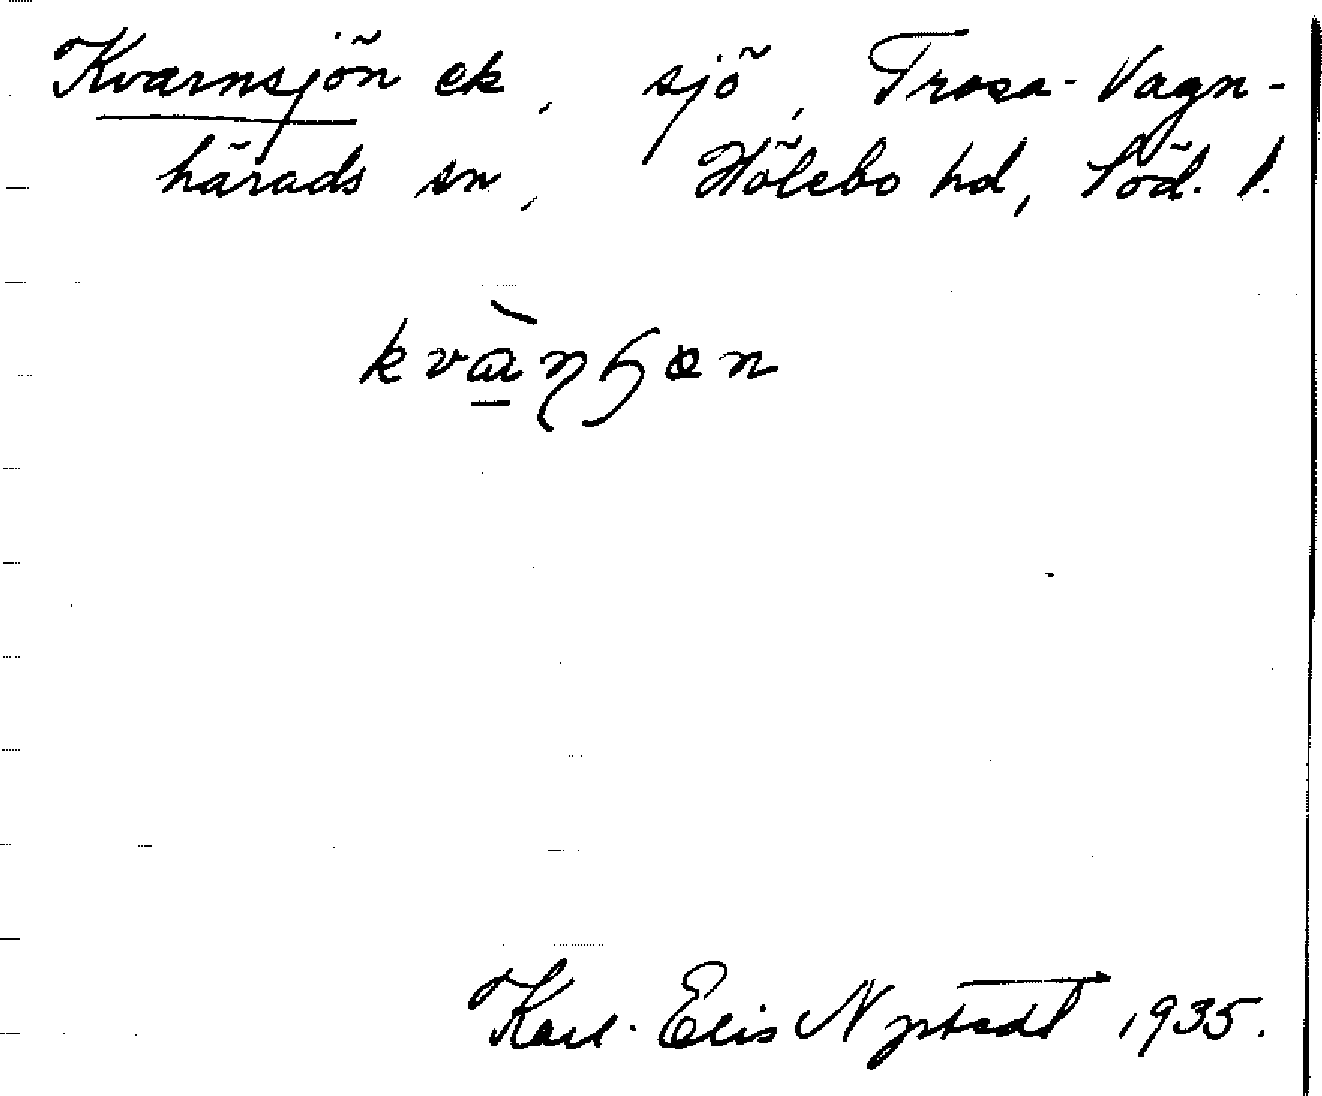 Kvarnsjön ek, sjö, Trosa-Vagn-
härads sn, Hölebo hd, Söd. l.
Karl-Elis Nystedt 1935.